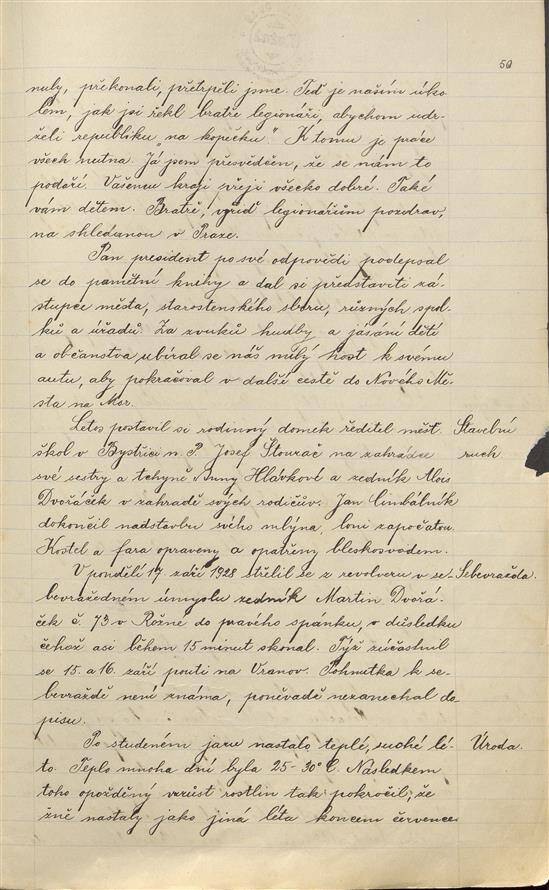 50
nuly, překonali, přetrpěli jsme. Teď je naším úko-
lem, jak jsi řekl bratře legionáři, abychom udr-
želi republiku "na kopečku." K tomu je práce
všech nutna. Já jsem přesvědčen, že se nám to
podaří. Vašemu kraji přeji všecko dobré. Také
vám dětem. Bratře, vyřiď legionářům pozdrav,
na shledanou v Praze.
Pan president po své odpovědi podepsal
se do pamětní knihy a dal si představiti zá-
stupce města, starostenského sboru, různých spol-
ků a úřadů. Za zvuků hudby a jásání dětí
a občanstva, ubíral se náš milý host k svému
autu, aby pokračoval v další cestě do Nového Mě-
sta na Mor.
Letos postavil si rodinný domek ředitel měšť. Stavební
škol v Bystřici n. P. Josef Štourač na zahradě ruch
své sestry a tchyně Anny Hlávkové a zedník Alois
Dvořáček v zahradě svých rodičův. Jan Cimbálník
dokončil nadstavbu svého mlýna, loni započatou.
Kostel a fara opraveny a opatřeny bleskosvodem.
V pondělí 17. září 1928 střelil se z revolveru v se- Sebevražda.
bevražedném úmyslu zedník Martin Dvořá-
ček č. 73 v Rožné do pravého spánku, v důsledku
čehož asi během 15 minut skonal. Týž zúčastnil
se 15. a 16. září pouti na Vranov. Pohnutka k se-
bevraždě není známa, poněvadž nezanechal do-
pisu.
Po studeném jaru nastalo teplé, suché lé- Úroda.
to. Teplo mnoha dní bylo 25-30° C. Následkem
toho opožděný vzrůst rostlin tak pokročil, že
žně nastaly jako jiná léta koncem července